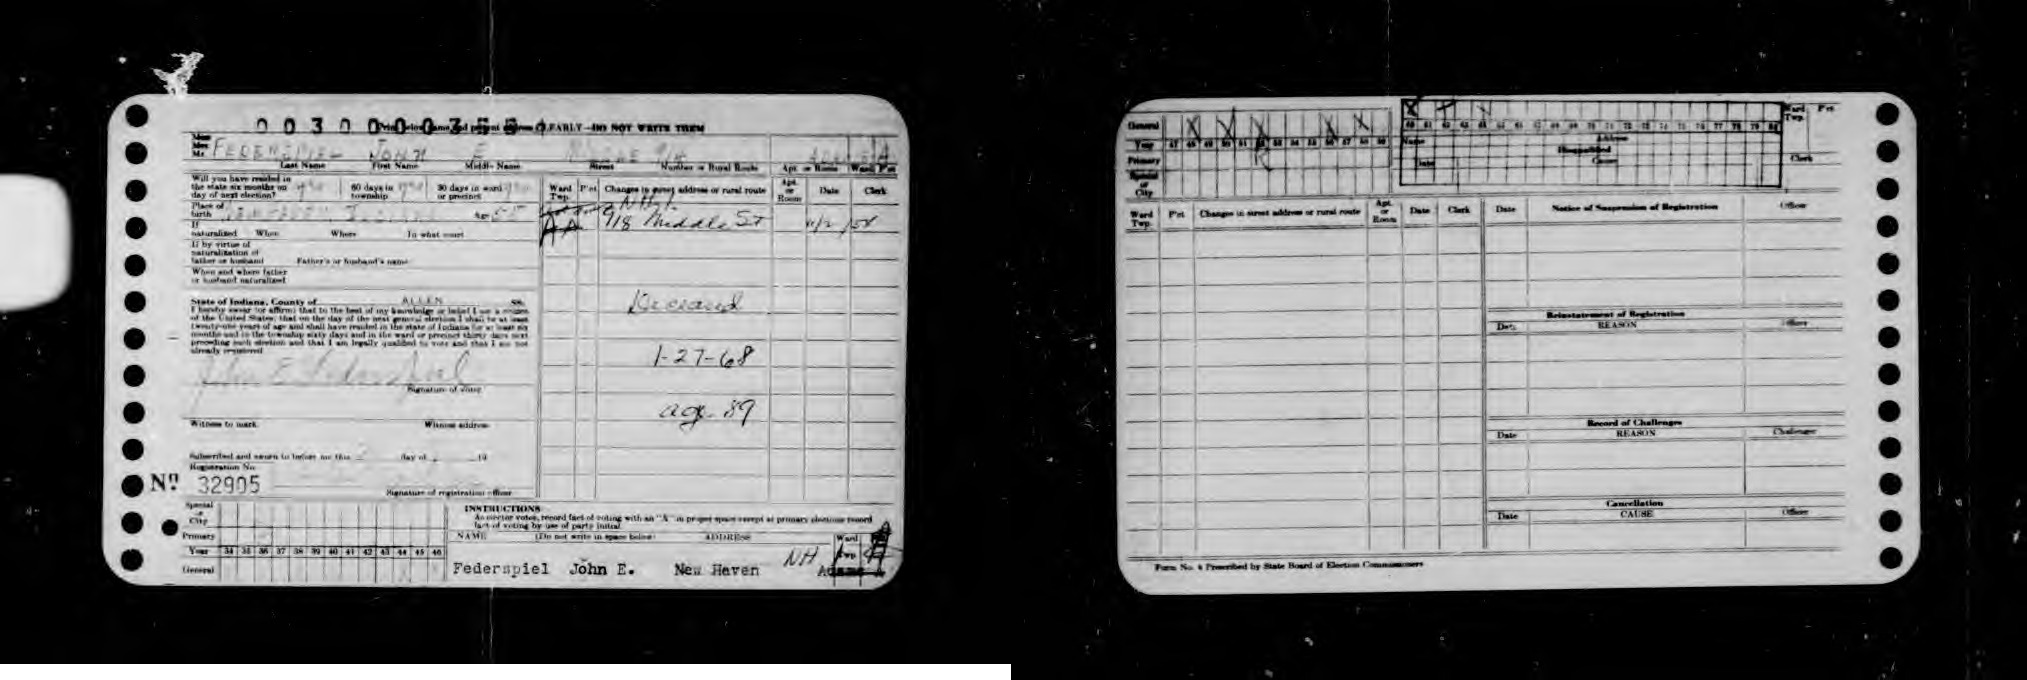 Print below name and present address CLEARLY—DO NOT WRITE THEM
Miss
Mrs.
Mr. FEDERSPIEL JOHN E
Last Name First Name Middle Name Street Number or Rural Route Apt. or Room Ward P'ct
Will you have resided in
the state six months on
day of next election?
60 days in
township
30 days in ward
or precinct
Place of
birth Age 55
If
naturalized When Where In what court
If by virtue of
naturalization of
father or husband Father's or husband's name
When and where father
or husband naturalized
State of Indiana, County of ALLEN ss.
I hereby swear (or affirm) that to the best of my knowledge or belief I am a citizen
of the United States; that on the day of the next general election I shall be at least
twenty-one years of age and shall have resided in the state of Indiana for at least six
months and in the township sixty days and in the ward or precinct thirty days next
preceding such election and that I am legally qualified to vote and that I am not
already registered
John E Federspiel
Signature of voter
Witness to mark Witness address
Subscribed and sworn to before me this day of 19
Registration No.
No 32905
Signature of registration officer
Ward Twp. P'ct Changes in street address or rural route Apt. or Room Date Clerk
918 Middle St 11/2/58
Deceased
1-27-68
age 89
Special
or
City
Primary
Year 34 35 36 37 38 39 40 41 42 43 44 45 46
General
INSTRUCTIONS
An elector votes, record fact of voting with an "X" in proper space except at primary elections record
fact of voting by use of party initial
NAME (Do not write in space below) ADDRESS Ward
Twp.
Federspiel John E. New Haven NH Adams A
General
Year 47 48 49 50 51 52 53 54 55 56 57 58 59
Primary
Special
or
City
60 61 62 63 64 65 66 67 68 69 70 71 72 73 74 75 76 77 78 79 80
Ward
Twp. P'ct
Name Address
Disqualified
Date Cause
Clerk
Ward
Twp. P'ct Changes in street address or rural route Apt. or Room Date Clerk
Date Notice of Suspension of Registration Officer
Reinstatement of Registration
Date REASON Officer
Record of Challenges
Date REASON Challenger
Cancellation
Date CAUSE Officer
Form No. 4 Prescribed by State Board of Election Commissioners